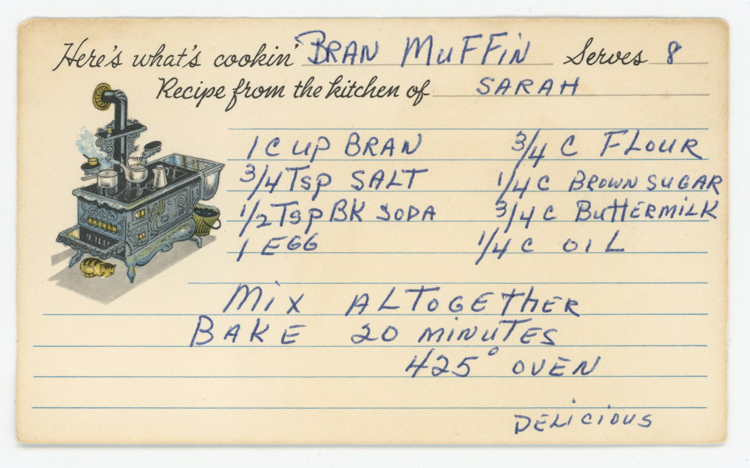 Here's what's cookin' BRAN MUFFIN Serves 8
Recipe from the kitchen of SARAH
1 CUP BRAN 3/4 C FLOUR
3/4 TSP SALT 1/4 C BROWN SUGAR
1/2 TSP BK SODA 3/4 C BUTTERMILK
1 EGG 1/4 C OIL
MIX ALTOGETHER
BAKE 20 MINUTES
425° OVEN
DELICIOUS